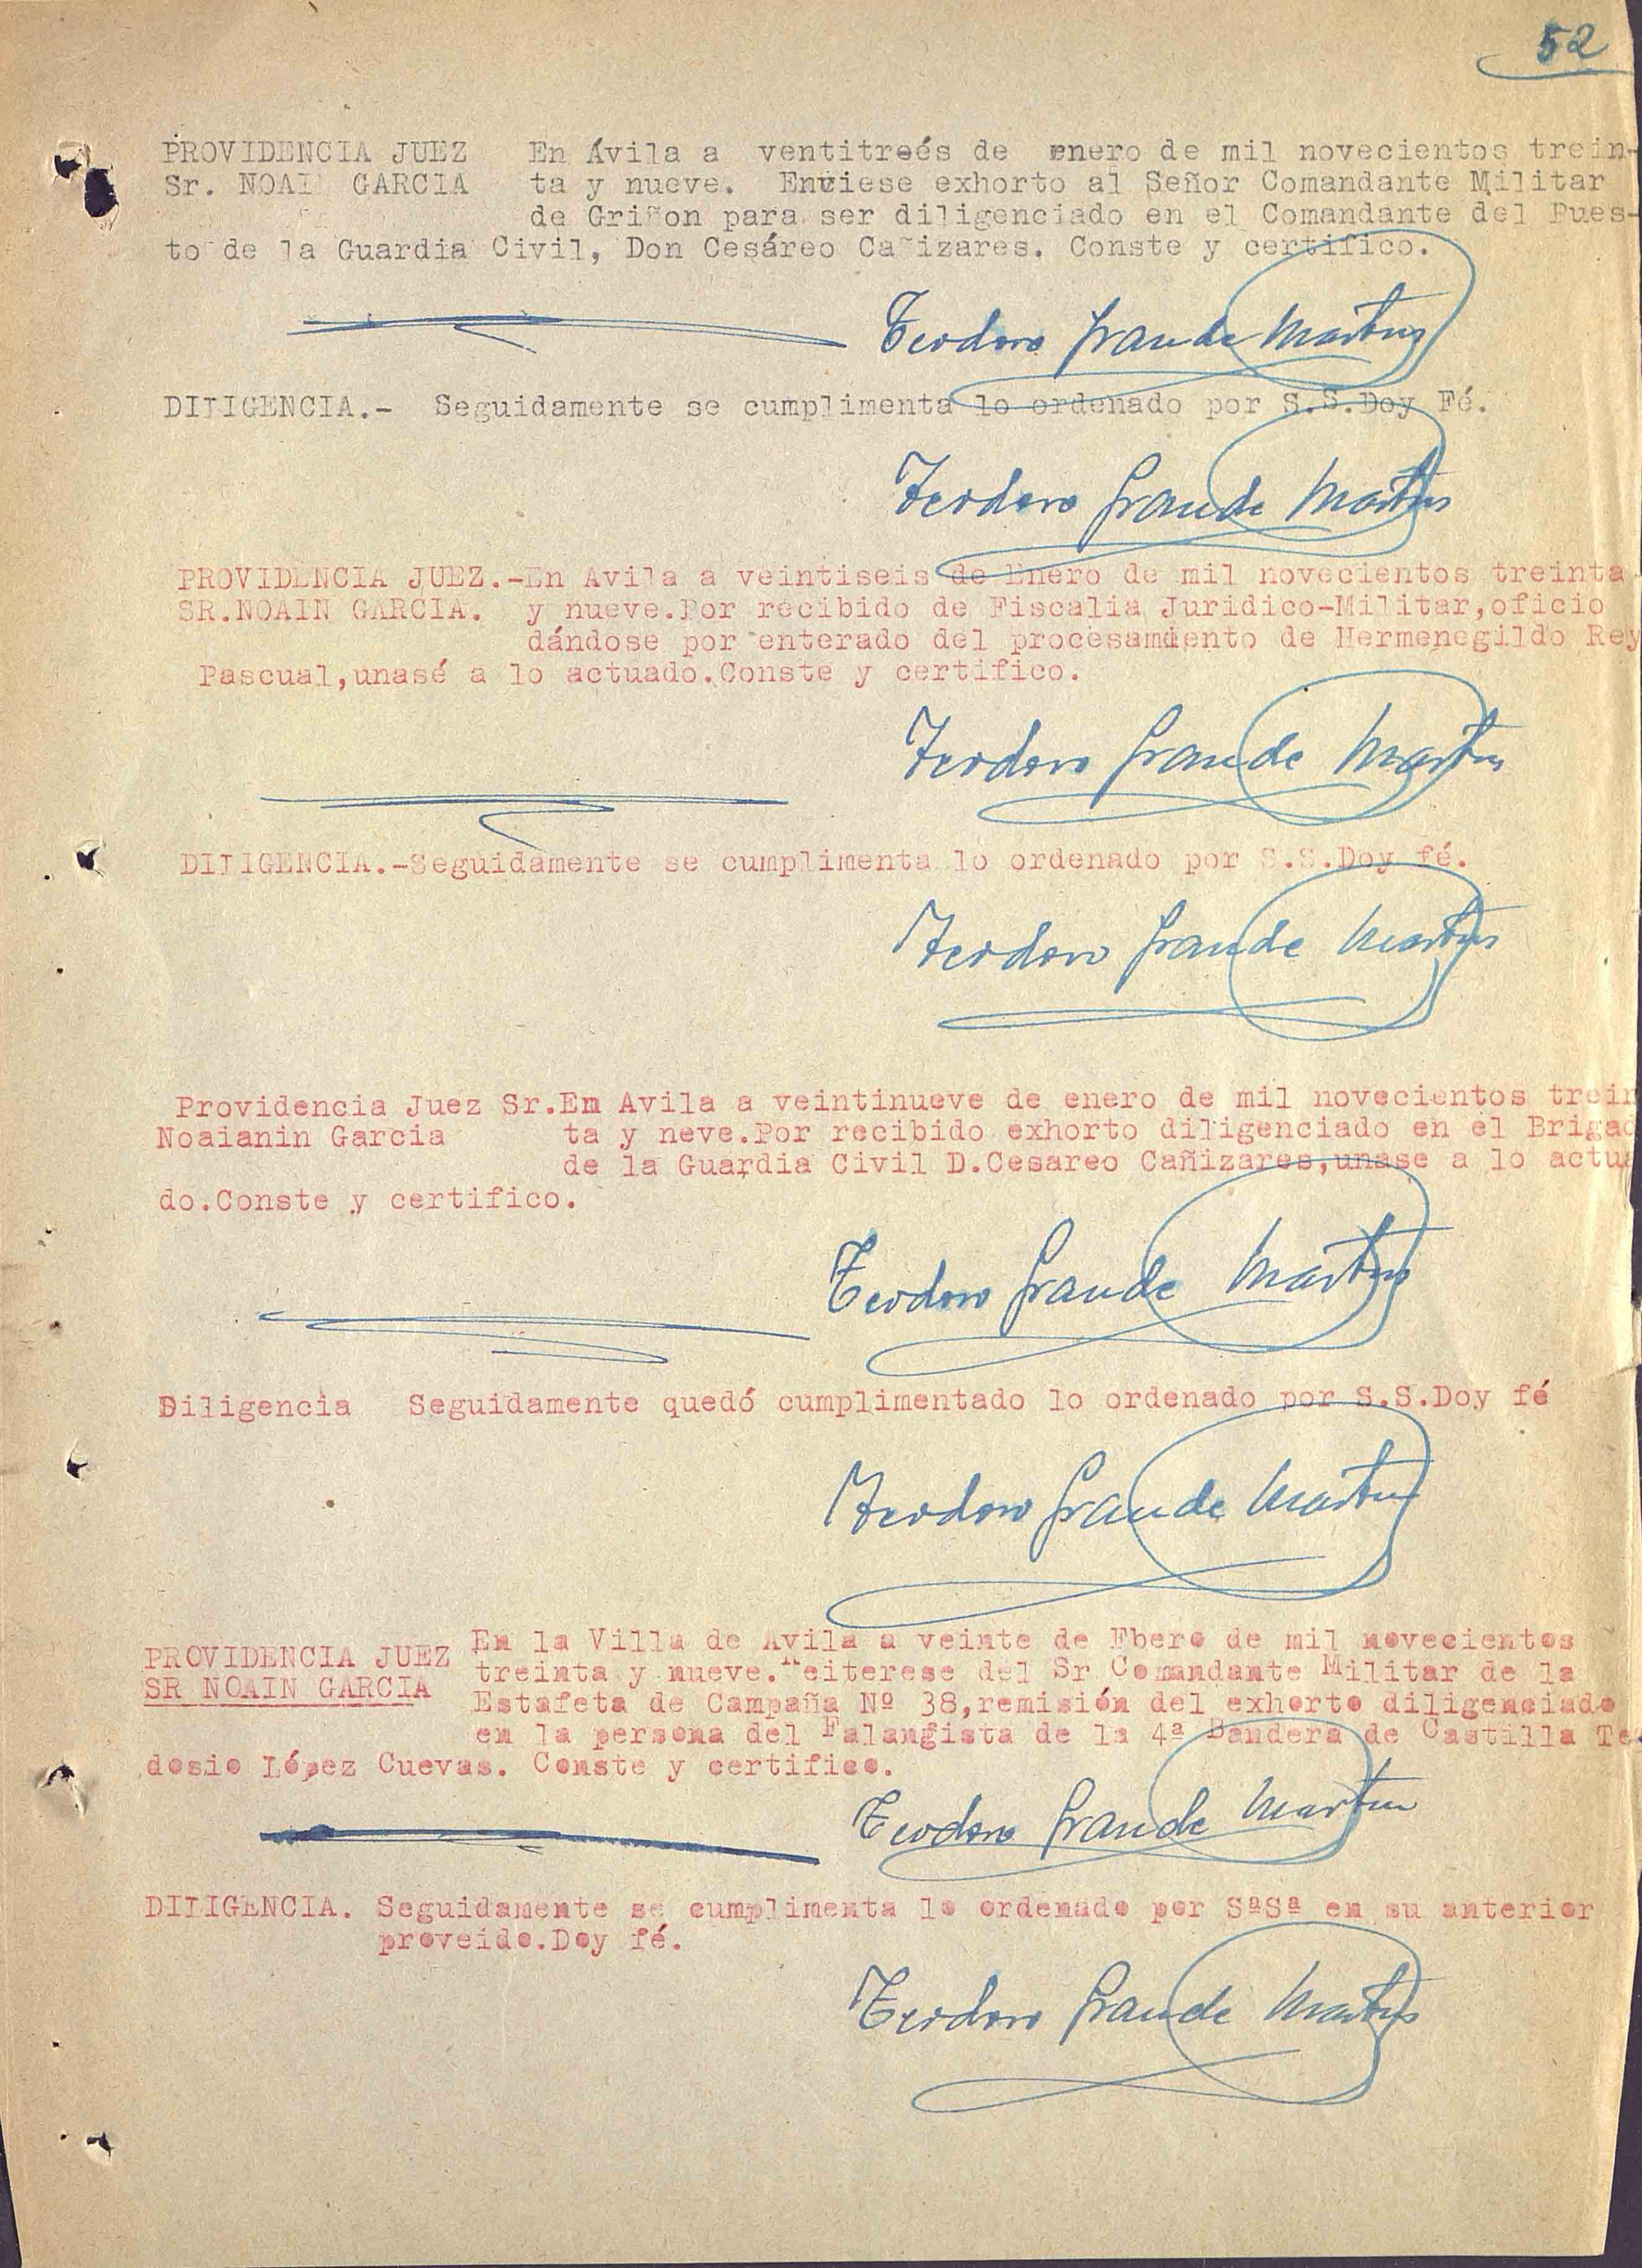 52
PROVIDENCIA JUEZ En Ávila a ventitreés de enero de mil novecientos trein-
Sr. NOAI GARCIA ta y nueve. Envíese exhorto al Señor Comandante Militar
de Griñon para ser diligenciado en el Comandante del Pues-
to de la Guardia Civil, Don Cesáreo Cañizares. Conste y certifico.
Teodoro Grande Martin
DILIGENCIA.- Seguidamente se cumplimenta lo ordenado por S.S.Doy Fé.
Teodoro Grande Martin
PROVIDENCIA JUEZ.-En Avila a veintiseis de Enero de mil novecientos treinta
SR.NOAIN GARCIA. y nueve.Por recibido de Fiscalia Juridico-Militar,oficio
dándose por enterado del procesamiento de Hermenegildo Rey
Pascual,unasé a lo actuado.Conste y certifico.
Teodoro Grande Martin
DILIGENCIA.-Seguidamente se cumplimenta lo ordenado por S.S.Doy fé.
Teodoro Grande Martin
Providencia Juez Sr.En Avila a veintinueve de enero de mil novecientos trein
Noaianin Garcia ta y neve.Por recibido exhorto diligenciado en el Brigad
de la Guardia Civil D.Cesareo Cañizares,unase a lo actua
do.Conste y certifico.
Teodoro Grande Martin
Diligencia Seguidamente quedó cumplimentado lo ordenado por S.S.Doy fé
Teodoro Grande Martin
PROVIDENCIA JUEZ En la Villa de Avila a veinte de Fbero de mil novecientos
SR NOAIN GARCIA treinta y nueve.Reiterese del Sr Comandante Militar de la
Estafeta de Campaña Nº 38,remisión del exhorto diligenciado
en la persona del Falangista de la 4ª Bandera de Castilla Te
dosio López Cuevas. Conste y certifico.
Teodoro Grande Martin
DILIGENCIA. Seguidamente se cumplimenta lo ordenado por SªSª en su anterior
proveido.Doy fé.
Teodoro Grande Martin